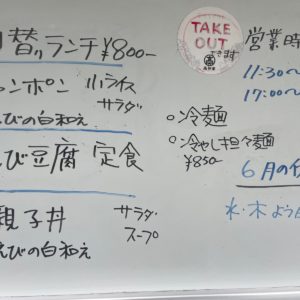 日替りランチ ¥800-
ャンポン 小ライス
サラダ
えびの白和え
えび豆腐 定食
親子丼 サラダ
スープ
えびの白和え
TAKE
OUT
できます
営業時
11:30~
17:00~
○冷麺
○冷やし担々麺
¥850-
6月の
水・木よう